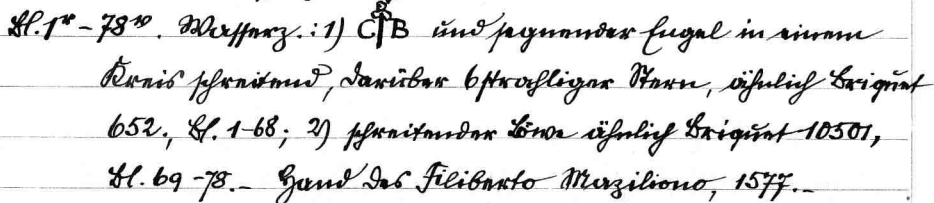 Bl. 1r – 78v. Wasserz.: 1) C B und segnender Engel in einem
Kreis schreitend, darüber 6strahliger Stern, ähnlich Briquet
652, Bl. 1-68; 2) schreitender Löwe ähnlich Briquet 10501,
Bl. 69-78.– Hand des Filiberto Maziliono, 1577.–